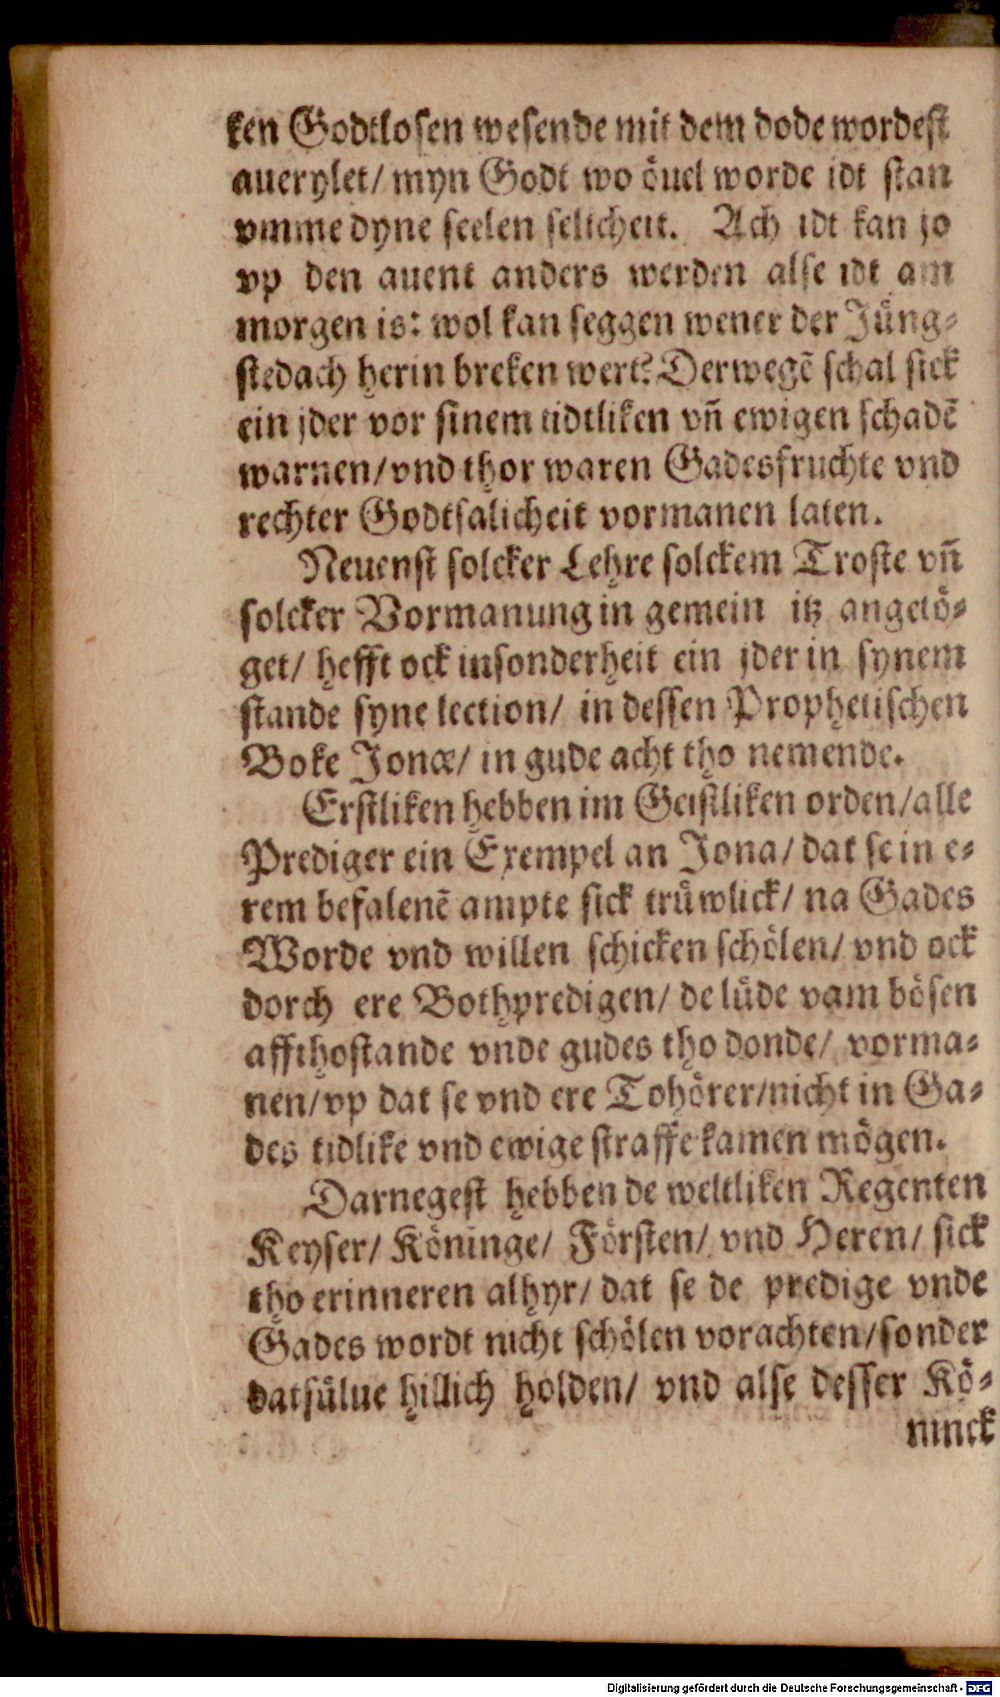 ken Godtlosen wesende mit dem dode wordest
auerylet/ myn Godt wo öuel worde idt stan
vmme dyne seelen selicheit. Ach idt kan jo
vp den auent anders werden alse idt am
morgen is: wol kan seggen wener der Jüng-
stedach herin breken wert? Derwegē schal sick
ein jder vor sinem tidtliken vñ ewigen schadē
warnen/ vnd thor waren Gadesfruchte vnd
rechter Godtsalicheit vormanen laten.
Neuenst solcker Lehre solckem Troste vñ
solcker Vormanung in gemein itz angetö-
get/ hefft ock insonderheit ein jder in synem
stande syne lection/ in dessen Prophetischen
Boke Jonæ/ in gude acht tho nemende.
Erstliken hebben im Geistliken orden/ alle
Prediger ein Exempel an Jona/ dat se in e-
rem befalenē ampte sick trüwlick/ na Gades
Worde vnd willen schicken schölen/ vnd ock
dorch ere Bothpredigen/ de lüde vam bösen
affthostande vnde gudes tho donde/ vorma-
nen/ vp dat se vnd ere Tohörer/ nicht in Ga-
des tidlike vnd ewige straffe kamen mögen.
Darnegest hebben de weltliken Regenten
Keyser/ Köninge/ Försten/ vnd Heren/ sick
tho erinneren alhyr/ dat se de predige vnde
Gades wordt nicht schölen vorachten/ sonder
datsülue hillich holden/ vnd alse desser Kö-
ninck
Digitalisierung gefördert durch die Deutsche Forschungsgemeinschaft - DFG